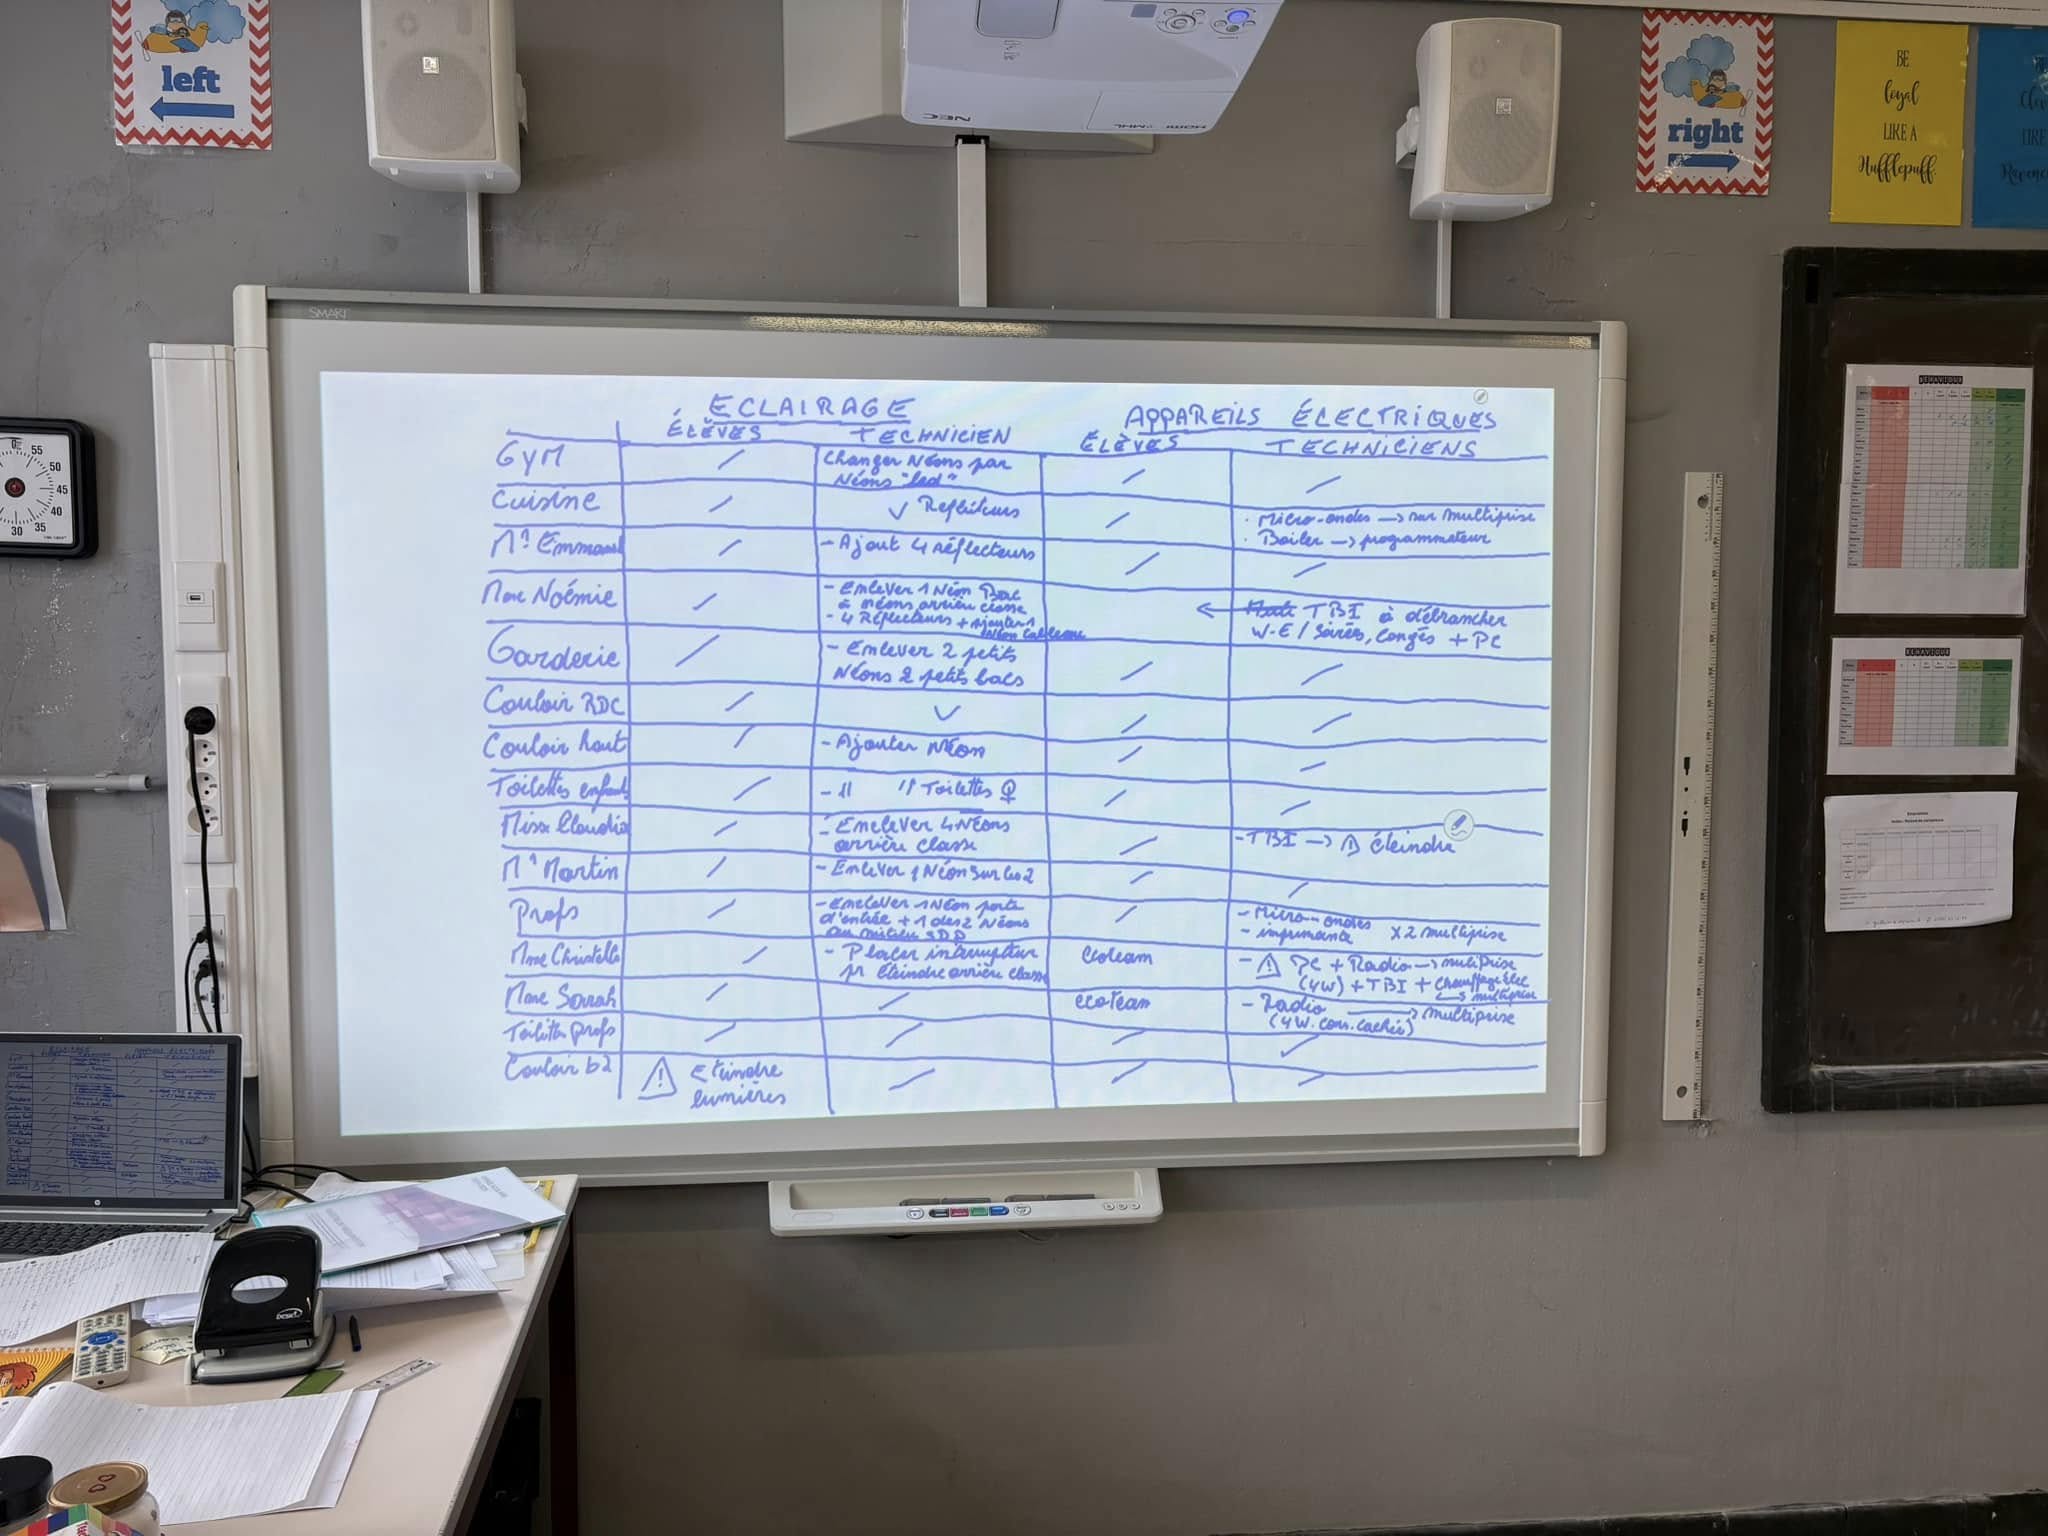 left
NEC
HDMI MHL
right
BE
loyal
LIKE A
Hufflepuff.
LIKE
SMART
55
50
45
40
35
30
BEHAVIOUR
BEHAVIOUR
ECLAIRAGE
APPAREILS ÉLECTRIQUES
ÉLÈVES TECHNICIEN ÉLÈVES TECHNICIENS
GYM / Changer Néons par / /
Néons "led"
Cuisine / ✓ Reflecteurs / · Micro-ondes → sur multiprise
· Boiler → programmateur
Mr Emmanuel / - Ajout 4 réflecteurs / /
Mme Noémie / - Enlever 1 Néon Bac ← TBI à débrancher
à néons arrière classe W-E / Soirées, Congés + PC
- 4 Réflecteurs + Ajouter 1
Néon tableau
Garderie / - Enlever 2 petits / /
Néons 2 petits bacs
Couloir RDC / ✓ / /
Couloir haut / - Ajouter Néon / /
Toilettes enfants / - " " Toilettes ♀ / /
Miss Claudia / - Enelever 4 Néons / - TBI → éteindre
arrière classe
Mr Martin / - Enlever 1 Néon sur les 2 / /
Profs / - Enelever 1 Néon porte / - Micro-ondes
d'entrée + 1 des 2 Néons - imprimante x2 multiprise
au milieu SDP
Mme Christelle / - Placer interrupteur Ecoteam - ⚠ PC + Radio → multiprise
pr éteindre arrière classe (4W) + TBI + chauffage élec
↳ multiprise
Mme Sarah / / ecoteam - Radio → multiprise
(4W. con. cachée)
Toilettes profs / / / /
Couloir b2 ⚠ Eteindre / / /
lumières